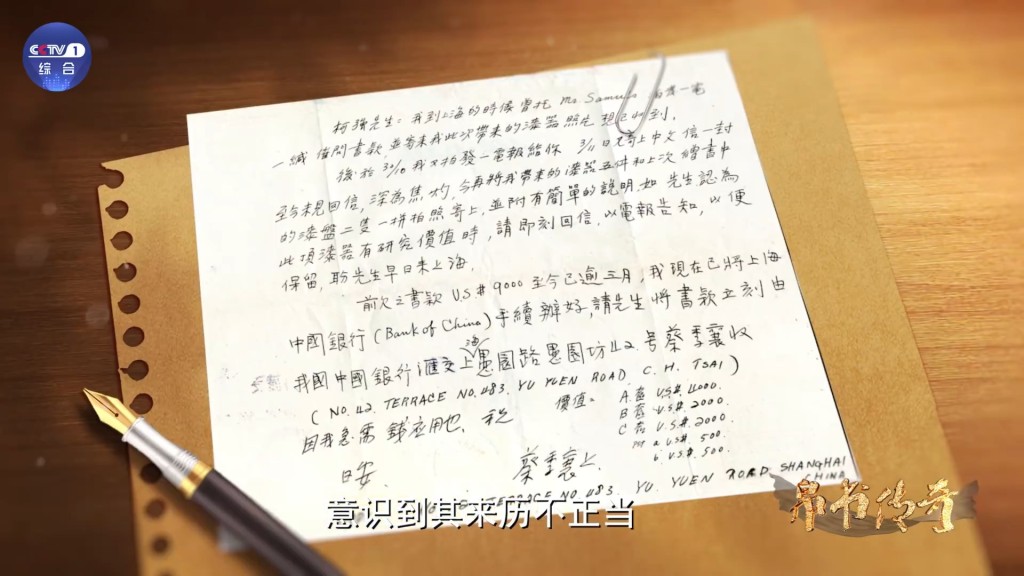 CCTV 1
综合
柯强先生：我到上海的時候曾托 Mr. Samuel 一電
一緘 值問書款 並寄來我此次帶來的漆器照片 想已收到.
後於 3/10 我又拍發一電報給你 3/11 日又寄上中文信一封
至今未見回信, 深為焦灼, 今再將我帶來的漆器五件和上次繒書中
的漆盤二隻一拼拍照寄上, 並附有簡單的說明. 如 先生認為
此項漆器有研究價值時, 請即刻回信. 以電報告知, 以便
保留, 盼先生早日来上海.
前次之書款 US$ 9000 至今已逾三月, 我現在已將上海
中國銀行 (Bank of China) 手續辦好, 請先生將書款立刻由
我國中國銀行匯交上海愚園路愚園坊42号蔡季襄收
(NO. 42. TERRACE NO. 483. YU YUEN ROAD. C. H. TSAI)
因我急需錢应用也. 祝
價值= A. US$. 4000.
B. US$. 2000.
C. U.S$. 2000.
a. US$. 500.
b. US$. 500.
日安.
蔡季襄上.
TERRACE NO. 483. YU. YUEN ROAD. SHANGHAI
CHINA
意识到其来历不正当
帛书传奇